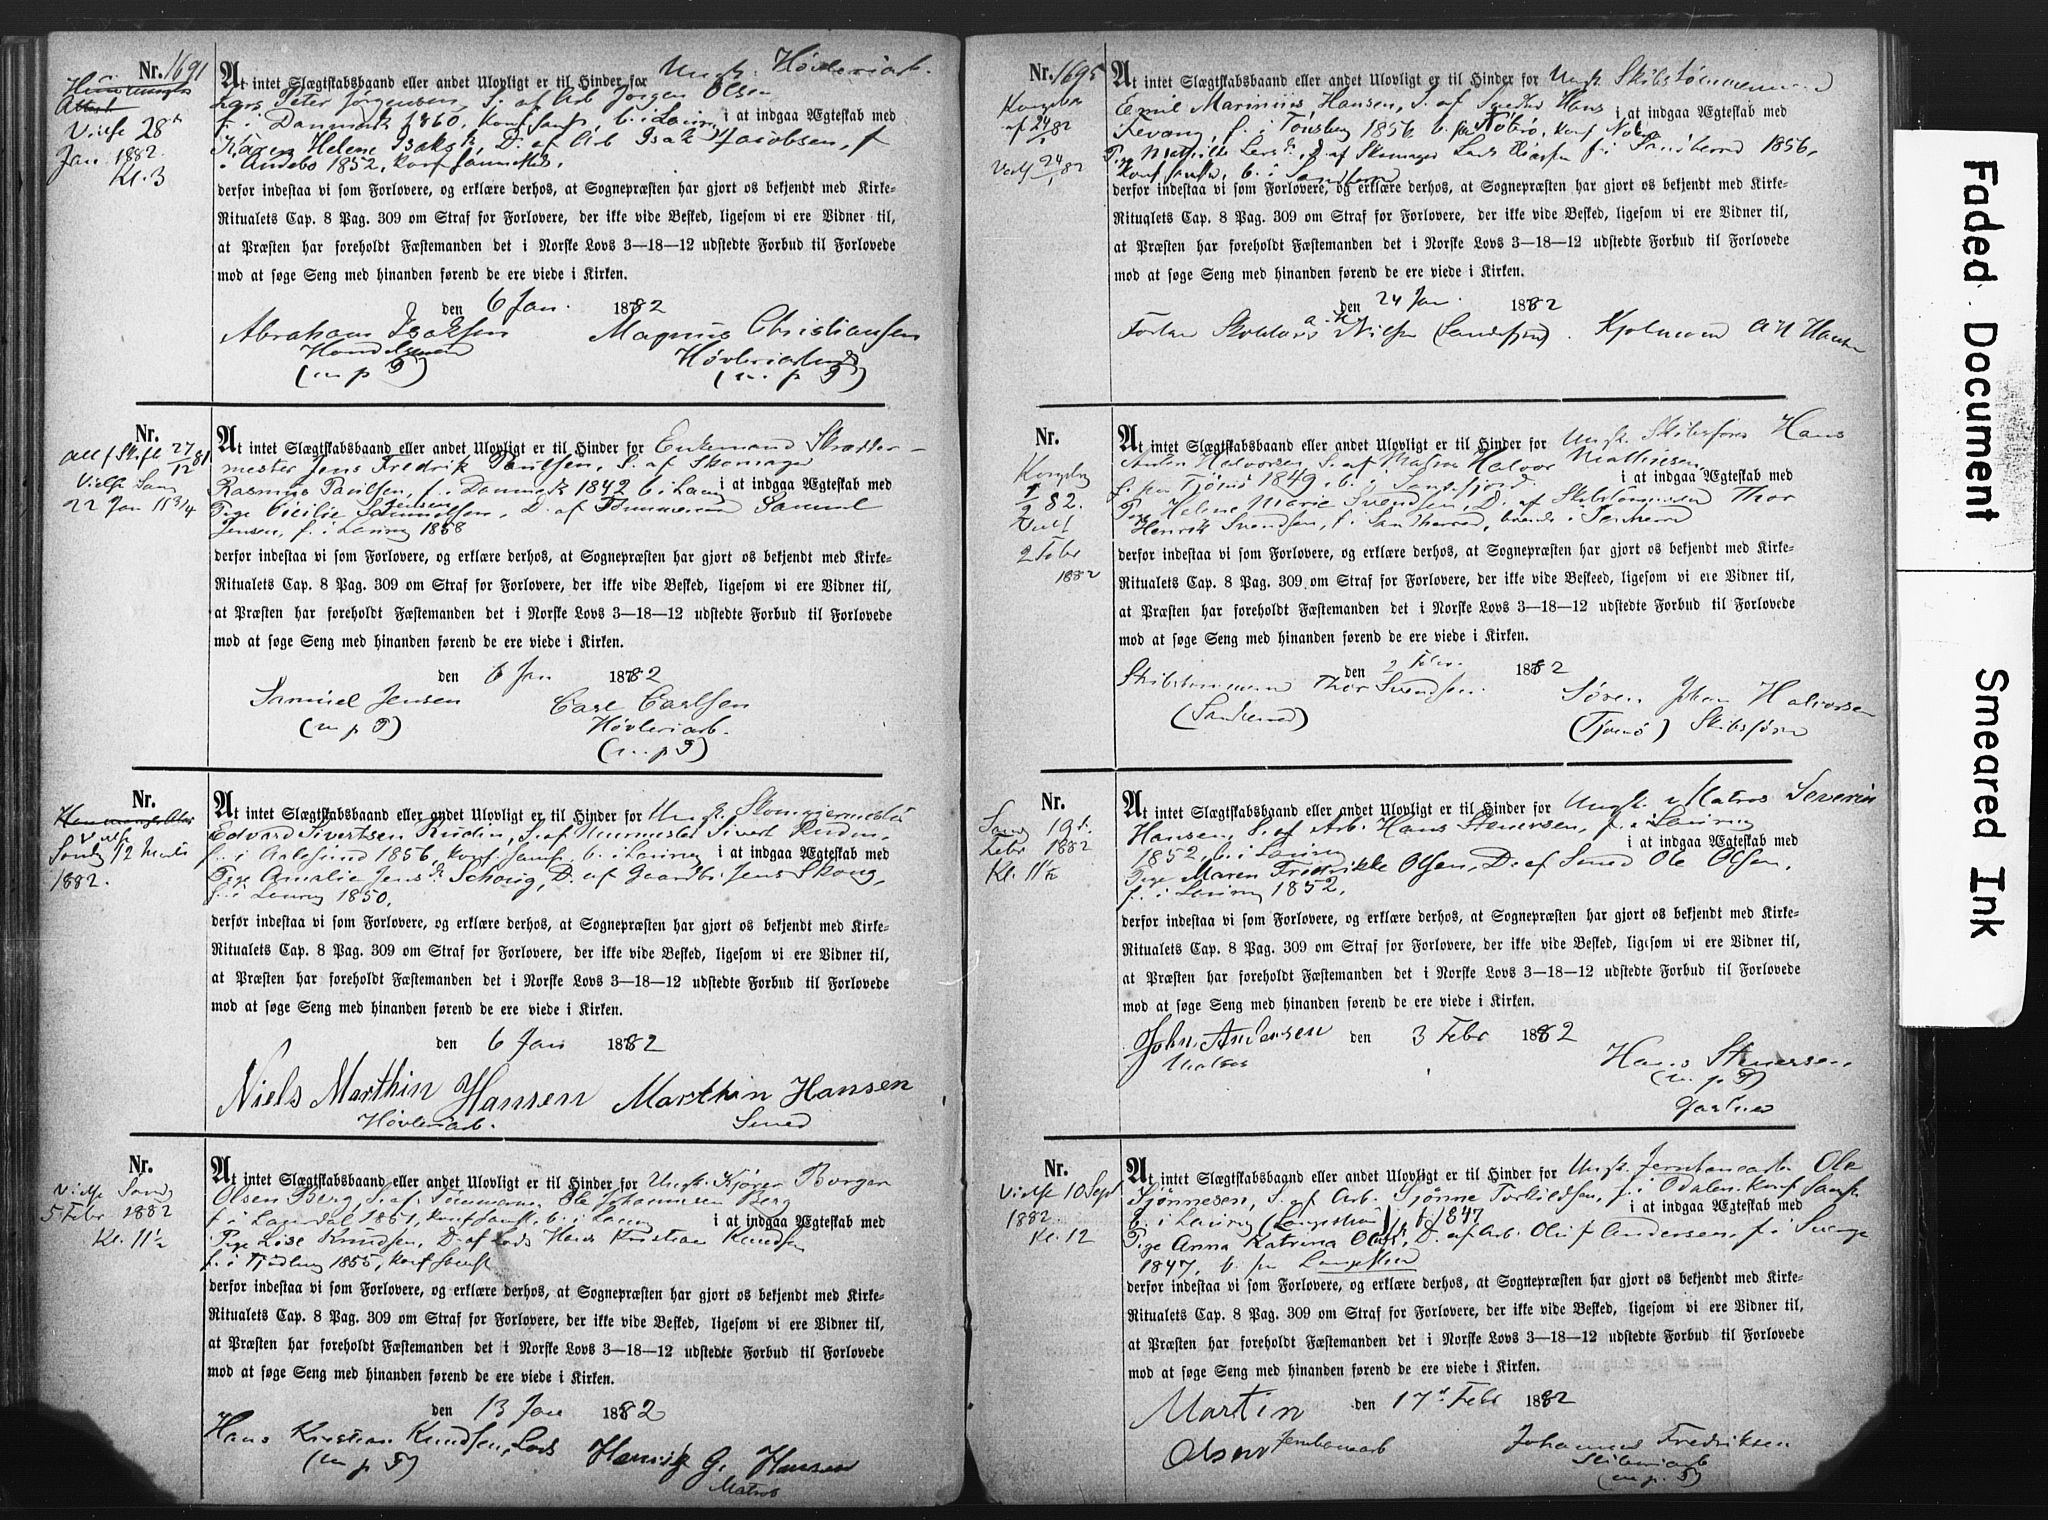 Nr. 1691
Vielse 28de
Jan 1882.
Kl. 3
At intet Slægtskabsbaand eller andet Ulovligt er til Hinder for Ungk. Høvleriarb.
Lars Peter Jørgensen, S. af Arb Jørgen Olsen
f. i Danmark 1860, konf samst, b. i Laurv i at indgaa Ægteskab med
Karen Helene Isaksd., D. af Arb Isak Jacobsen, f
i Andebo 1852, konf sammesteds.
derfor indestaa vi som Forlovere, og erklære derhos, at Sognepræsten har gjort os bekjendt med Kirke-
Ritualets Cap. 8 Pag. 309 om Straf for Forlovere, der ikke vide Besked, ligesom vi ere Vidner til,
at Præsten har foreholdt Fæstemanden det i Norske Lovs 3—18—12 udstedte Forbud til Forlovede
mod at søge Seng med hinanden førend de ere viede i Kirken.
den 6 Jan. 1882
Abraham Isaksen Magnus Christiansen
Handelsmand Høvleriarb
(m p P) (m. p P)
Nr.
Att f Skift 27/12 81
Vielse Sønd
22 Jan 11 3/4
At intet Slægtskabsbaand eller andet Ulovligt er til Hinder for Enkemand Skrædder-
mester Jens Fredrik Paulsen, S. af Skomager
Rasmus Paulsen, f. i Danmark 1842 b. i Laurv i at indgaa Ægteskab med
Pige Cicilie Jensen Samuelsen, D. af Tømmermand Samuel
Jensen, f. i Laurvig 1858
derfor indestaa vi som Forlovere, og erklære derhos, at Sognepræsten har gjort os bekjendt med Kirke-
Ritualets Cap. 8 Pag. 309 om Straf for Forlovere, der ikke vide Besked, ligesom vi ere Vidner til,
at Præsten har foreholdt Fæstemanden det i Norske Lovs 3—18—12 udstedte Forbud til Forlovede
mod at søge Seng med hinanden førend de ere viede i Kirken.
den 6 Jan 1882
Samuel Jensen Carl Carlsen
(m p P) Høvleriarb.
(m. p P)
Nr.
Vielse
Søndg 12 Marts
1882.
At intet Slægtskabsbaand eller andet Ulovligt er til Hinder for Ungk. Skomagermester
Edvard Sivertsen Rudin, S. af Murmester Sivert Rudin,
f. i Aalesund 1856, konf samst. b. i Laurvig i at indgaa Ægteskab med
Pige Amalie Jensd. Schoug, D. af Gaardbr. Jens Skoug,
f. i Laurvig 1850,
derfor indestaa vi som Forlovere, og erklære derhos, at Sognepræsten har gjort os bekjendt med Kirke-
Ritualets Cap. 8 Pag. 309 om Straf for Forlovere, der ikke vide Besked, ligesom vi ere Vidner til,
at Præsten har foreholdt Fæstemanden det i Norske Lovs 3—18—12 udstedte Forbud til Forlovede
mod at søge Seng med hinanden førend de ere viede i Kirken.
den 6 Jan 1882
Niels Marthin Hansen Marthin Hansen
Høvleriarb. Smed
Nr.
Vielse Søndg
5 Febr 1882
Kl. 11 1/2
At intet Slægtskabsbaand eller andet Ulovligt er til Hinder for Ungk. Kjører Borger
Olsen Berg, S. af Tømmerm. Ole Johannesen Berg
f. i Laurdal 1861, konf samst, b. i Laurvig i at indgaa Ægteskab med
Pige Lise Knudsen, D. af Lods Hans Kristian Knudsen
f. i Tjødling 1855, konf samst
derfor indestaa vi som Forlovere, og erklære derhos, at Sognepræsten har gjort os bekjendt med Kirke-
Ritualets Cap. 8 Pag. 309 om Straf for Forlovere, der ikke vide Besked, ligesom vi ere Vidner til,
at Præsten har foreholdt Fæstemanden det i Norske Lovs 3—18—12 udstedte Forbud til Forlovede
mod at søge Seng med hinanden førend de ere viede i Kirken.
den 13 Jan 1882
Hans Kristian Knudsen, Lods Henrik G. Hansen
(m p P) Matros
Nr. 1695
Kongebr
af 24/1 82
Viels 24/1 82
At intet Slægtskabsbaand eller andet Ulovligt er til Hinder for Ungk Skibstømmermand
Emil Marinius Hansen, S. af Snedker Hans
Levang, f. i Tønsberg 1856 b. paa Nøterø, konf Nøterø i at indgaa Ægteskab med
Pige Mathilde Larsd., D. af Skomager Lars f. i Sandherred 1856,
konf samst, b. i Sandherred
derfor indestaa vi som Forlovere, og erklære derhos, at Sognepræsten har gjort os bekjendt med Kirke-
Ritualets Cap. 8 Pag. 309 om Straf for Forlovere, der ikke vide Besked, ligesom vi ere Vidner til,
at Præsten har foreholdt Fæstemanden det i Norske Lovs 3—18—12 udstedte Forbud til Forlovede
mod at søge Seng med hinanden førend de ere viede i Kirken.
den 24 Jan. 1882
Nilsen (Sandefjord) A H Hansen
Nr.
Kongebr
1/2 82.
Viels
2 Febr
1882
At intet Slægtskabsbaand eller andet Ulovligt er til Hinder for Ungk. Skibsfører Hans
Anton Halvorsen S. af Matros Halvor Mathiesen,
f. paa Tjømø 1849, b. i Sandefjord i at indgaa Ægteskab med
Pige Helene Marie Svendsen, D. af Skibstømmermand Thor
Henrik Svendsen, f. i Sandherred, boende i Sandherred
derfor indestaa vi som Forlovere, og erklære derhos, at Sognepræsten har gjort os bekjendt med Kirke-
Ritualets Cap. 8 Pag. 309 om Straf for Forlovere, der ikke vide Beskeed, ligesom vi ere Vidner til,
at Præsten har foreholdt Fæstemanden det i Norske Lovs 3—18—12 udstedte Forbud til Forlovede
mod at søge Seng med hinanden førend de ere viede i Kirken.
den 2 Febr. 1882
Skibstømmermand Thor Svendsen. Søren Johan Halvorsen
(Sandherred) (Tjømø) Skibsfører
Nr.
Søndg 19de
Febr 1882
Kl. 11 1/2
At intet Slægtskabsbaand eller andet Ulovligt er til Hinder for Ungk. Matros Severin
Hansen, S. af Arb. Hans Stenersen, f. i Laurvig
1852, b. i Laurvig i at indgaa Ægteskab med
Pige Maren Fredrikke Olsen, D. af Smed Ole Olsen,
f. i Laurvig 1852,
derfor indestaa vi som Forlovere, og erklære derhos, at Sognepræsten har gjort os bekjendt med Kirke-
Ritualets Cap. 8 Pag. 309 om Straf for Forlovere, der ikke vide Besked, ligesom vi ere Vidner til,
at Præsten har foreholdt Fæstemanden det i Norske Lovs 3—18—12 udstedte Forbud til Forlovede
mod at søge Seng med hinanden førend de ere viede i Kirken.
John Andersen den 3 Febr 1882
Matros Hans Stenersen,
(m. p P)
Gartner
Nr.
Vielse 10 Sept
1882
Kl. 12
At intet Slægtskabsbaand eller andet Ulovligt er til Hinder for Ungk. Jernbanearb. Ole
Sjønnesen, S. af Arb. Sjønne Torkildsen, f. i Odalen konf samst
b. i Laurvig (Langestrand) f. 1847 i at indgaa Ægteskab med
Pige Anna Katrina Olsd., D. af Arb. Oluf Andersen, f. i Sverige
1847, b. paa Langestrand
derfor indestaa vi som Forlovere, og erklære derhos, at Sognepræsten har gjort os bekjendt med Kirke-
Ritualets Cap. 8 Pag. 309 om Straf for Forlovere, der ikke vide Besked, ligesom vi ere Vidner til,
at Præsten har foreholdt Fæstemanden det i Norske Lovs 3—18—12 udstedte Forbud til Forlovede
mod at søge Seng med hinanden førend de ere viede i Kirken.
Martin den 17de Febr 1882
Olsen Jernbanearb Johannes Fredriksen
Sliberiarb
(m. p. P)
Faded Document
Smeared Ink